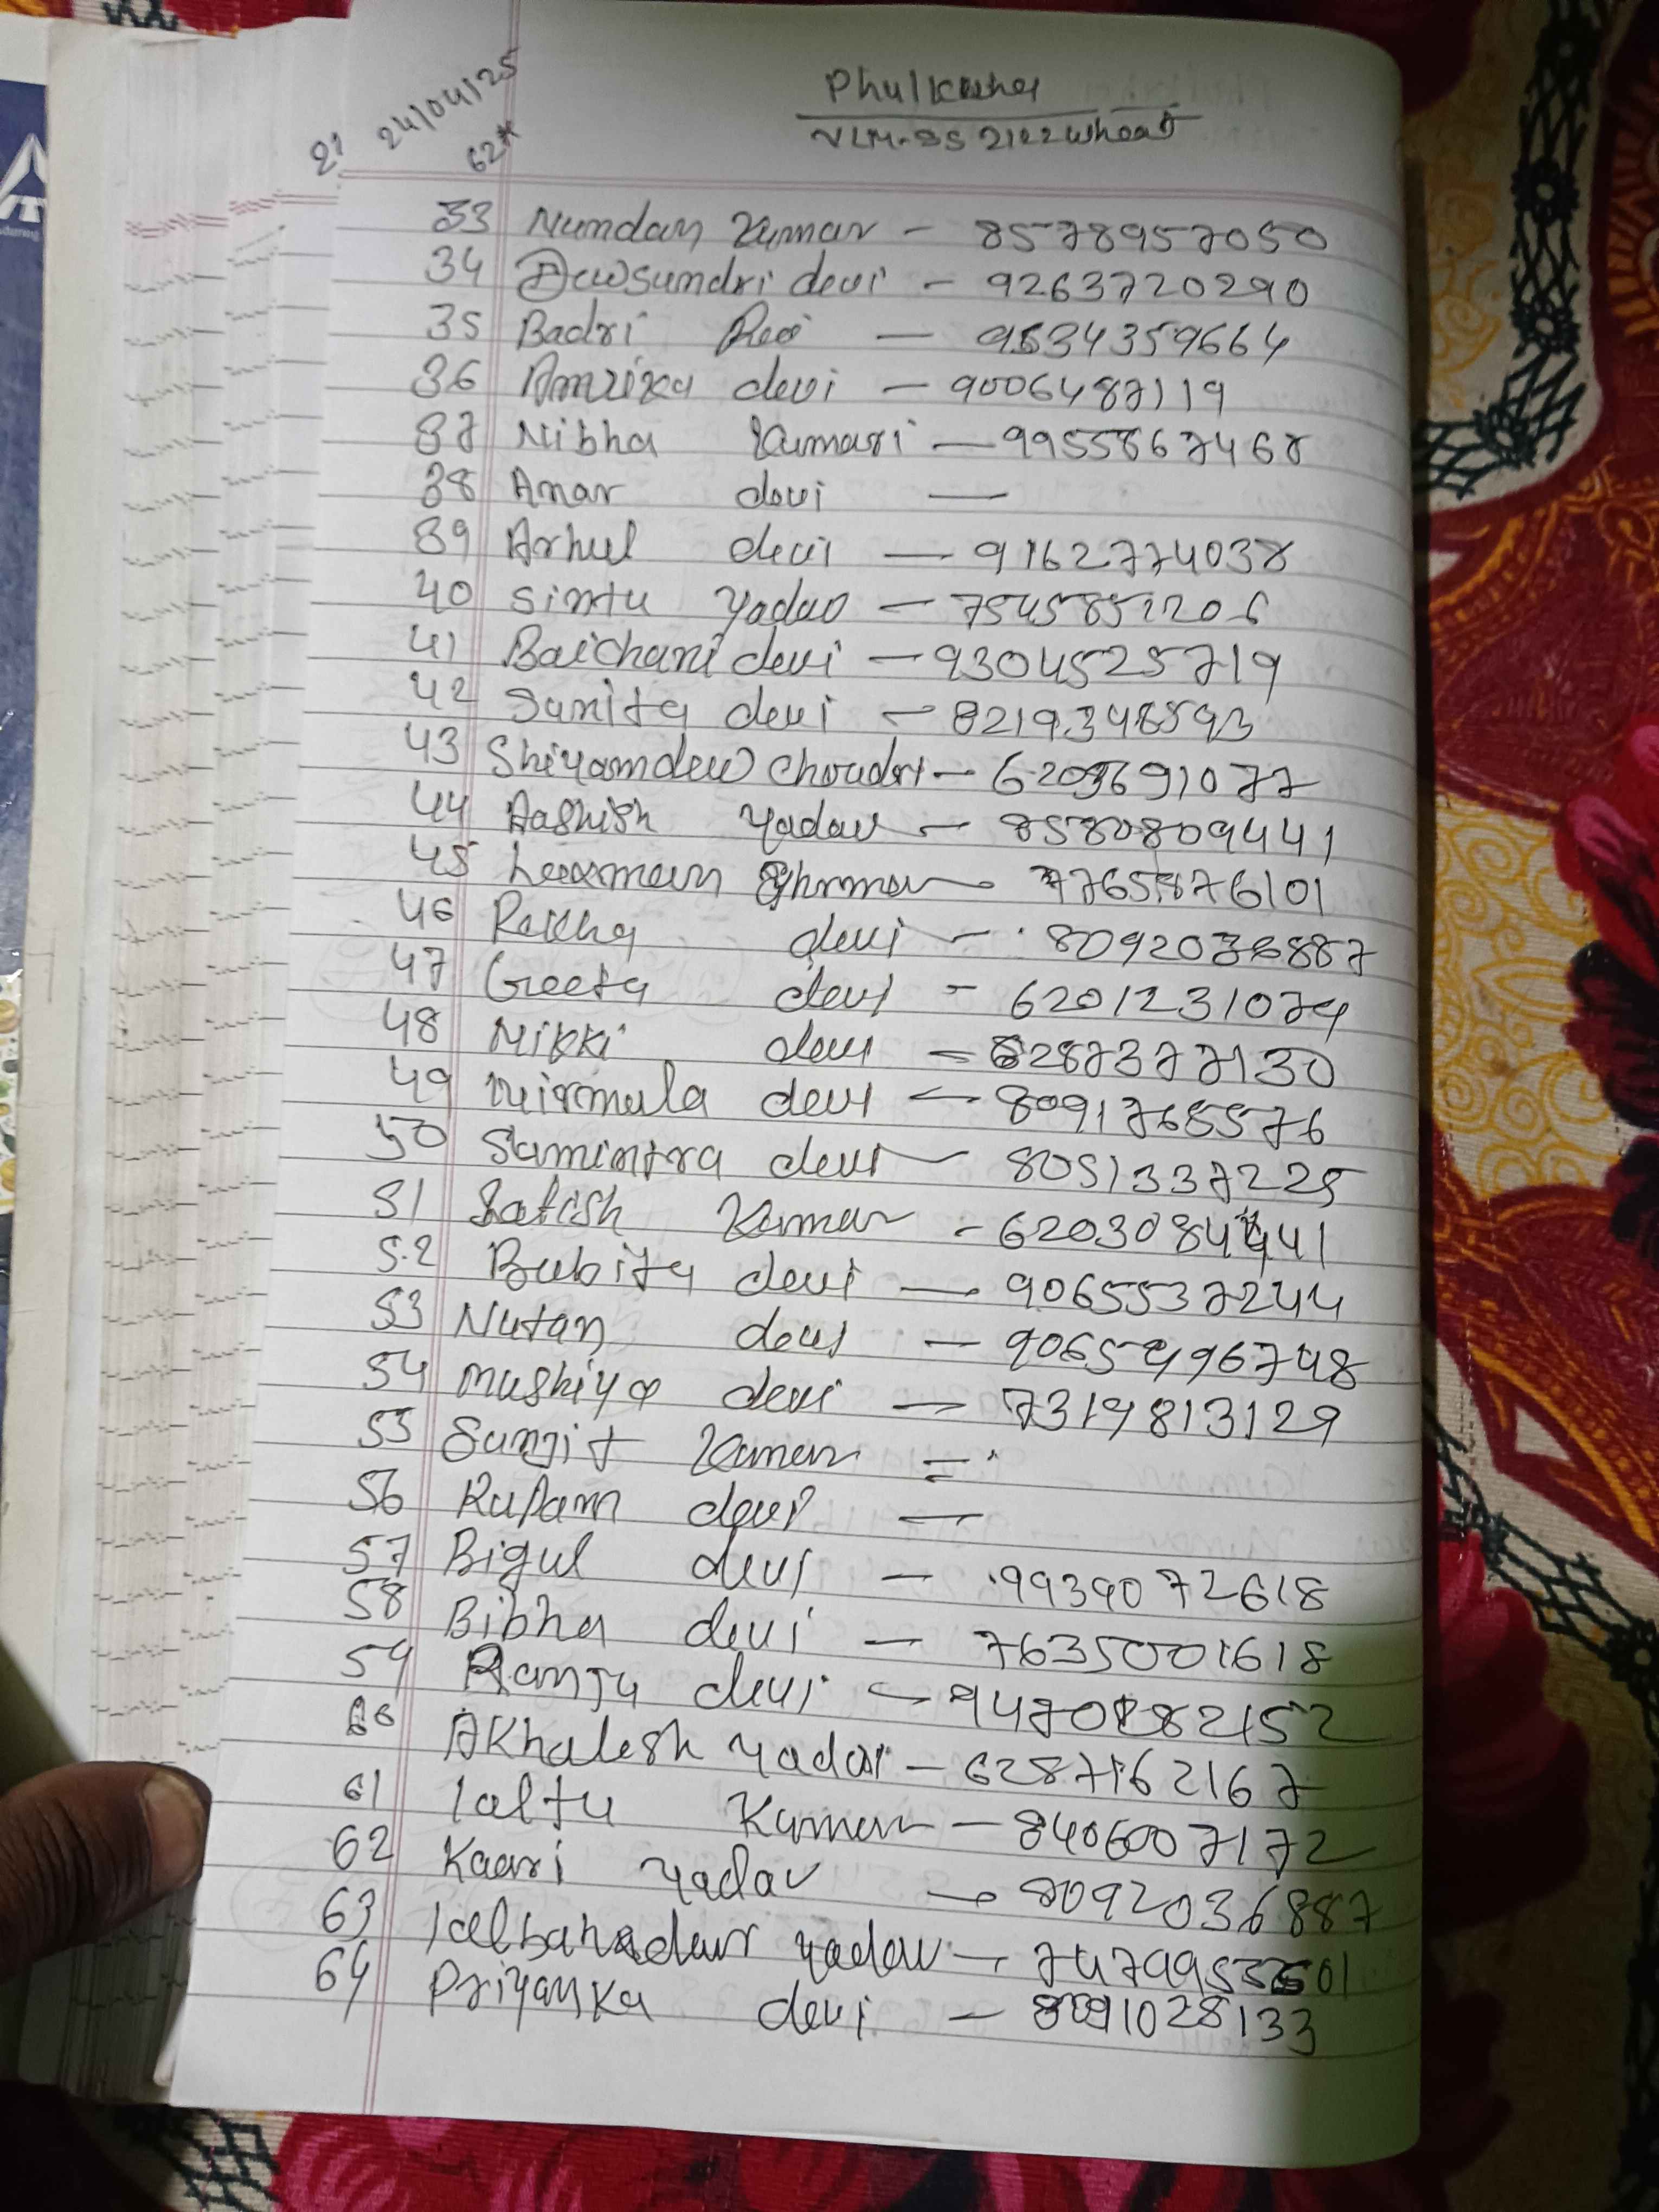 24/04/25
Phulkaha
62
33 Numdan Kumar - 8578957050
34 Dewsundri devi - 9263720290
35 Badri - 9534359664
36 Amrika devi - 9006487119
37 Nibha Kumari - 9955867468
38 Anar devi -
39 Arhul devi - 9162774038
40 Sintu Yadav - 7545851206
41 Baichani devi - 9304525719
42 Sunita devi - 8219348593
43 Shiyamdew Choudri -
44 Aashish Yadav - 8580809441
45 Laxman - 7765876101
46 Rekha devi - 8092036887
47 Geeta devi - 6201231074
48 Nikki devi - 6287377130
49 Nirmala devi - 8091768576
50 Samintra devi - 8051337225
51 Satish Kumar -
52 Bubita devi - 9065537244
53 Nutan devi -
54 Mushiya devi - 7319813129
55 Sunjit Kumar =
56 Rupam devi -
57 Bigul devi - 9939072618
58 Bibha devi - 7635001618
59 Ranju devi -
60 Akhalesh Yadav - 6287162167
61 laltu Kumar - 8406007172
62 Kaari Yadav - 8092036887
63 lalbahadur Yadav -
64 Priyanka devi - 8091028133